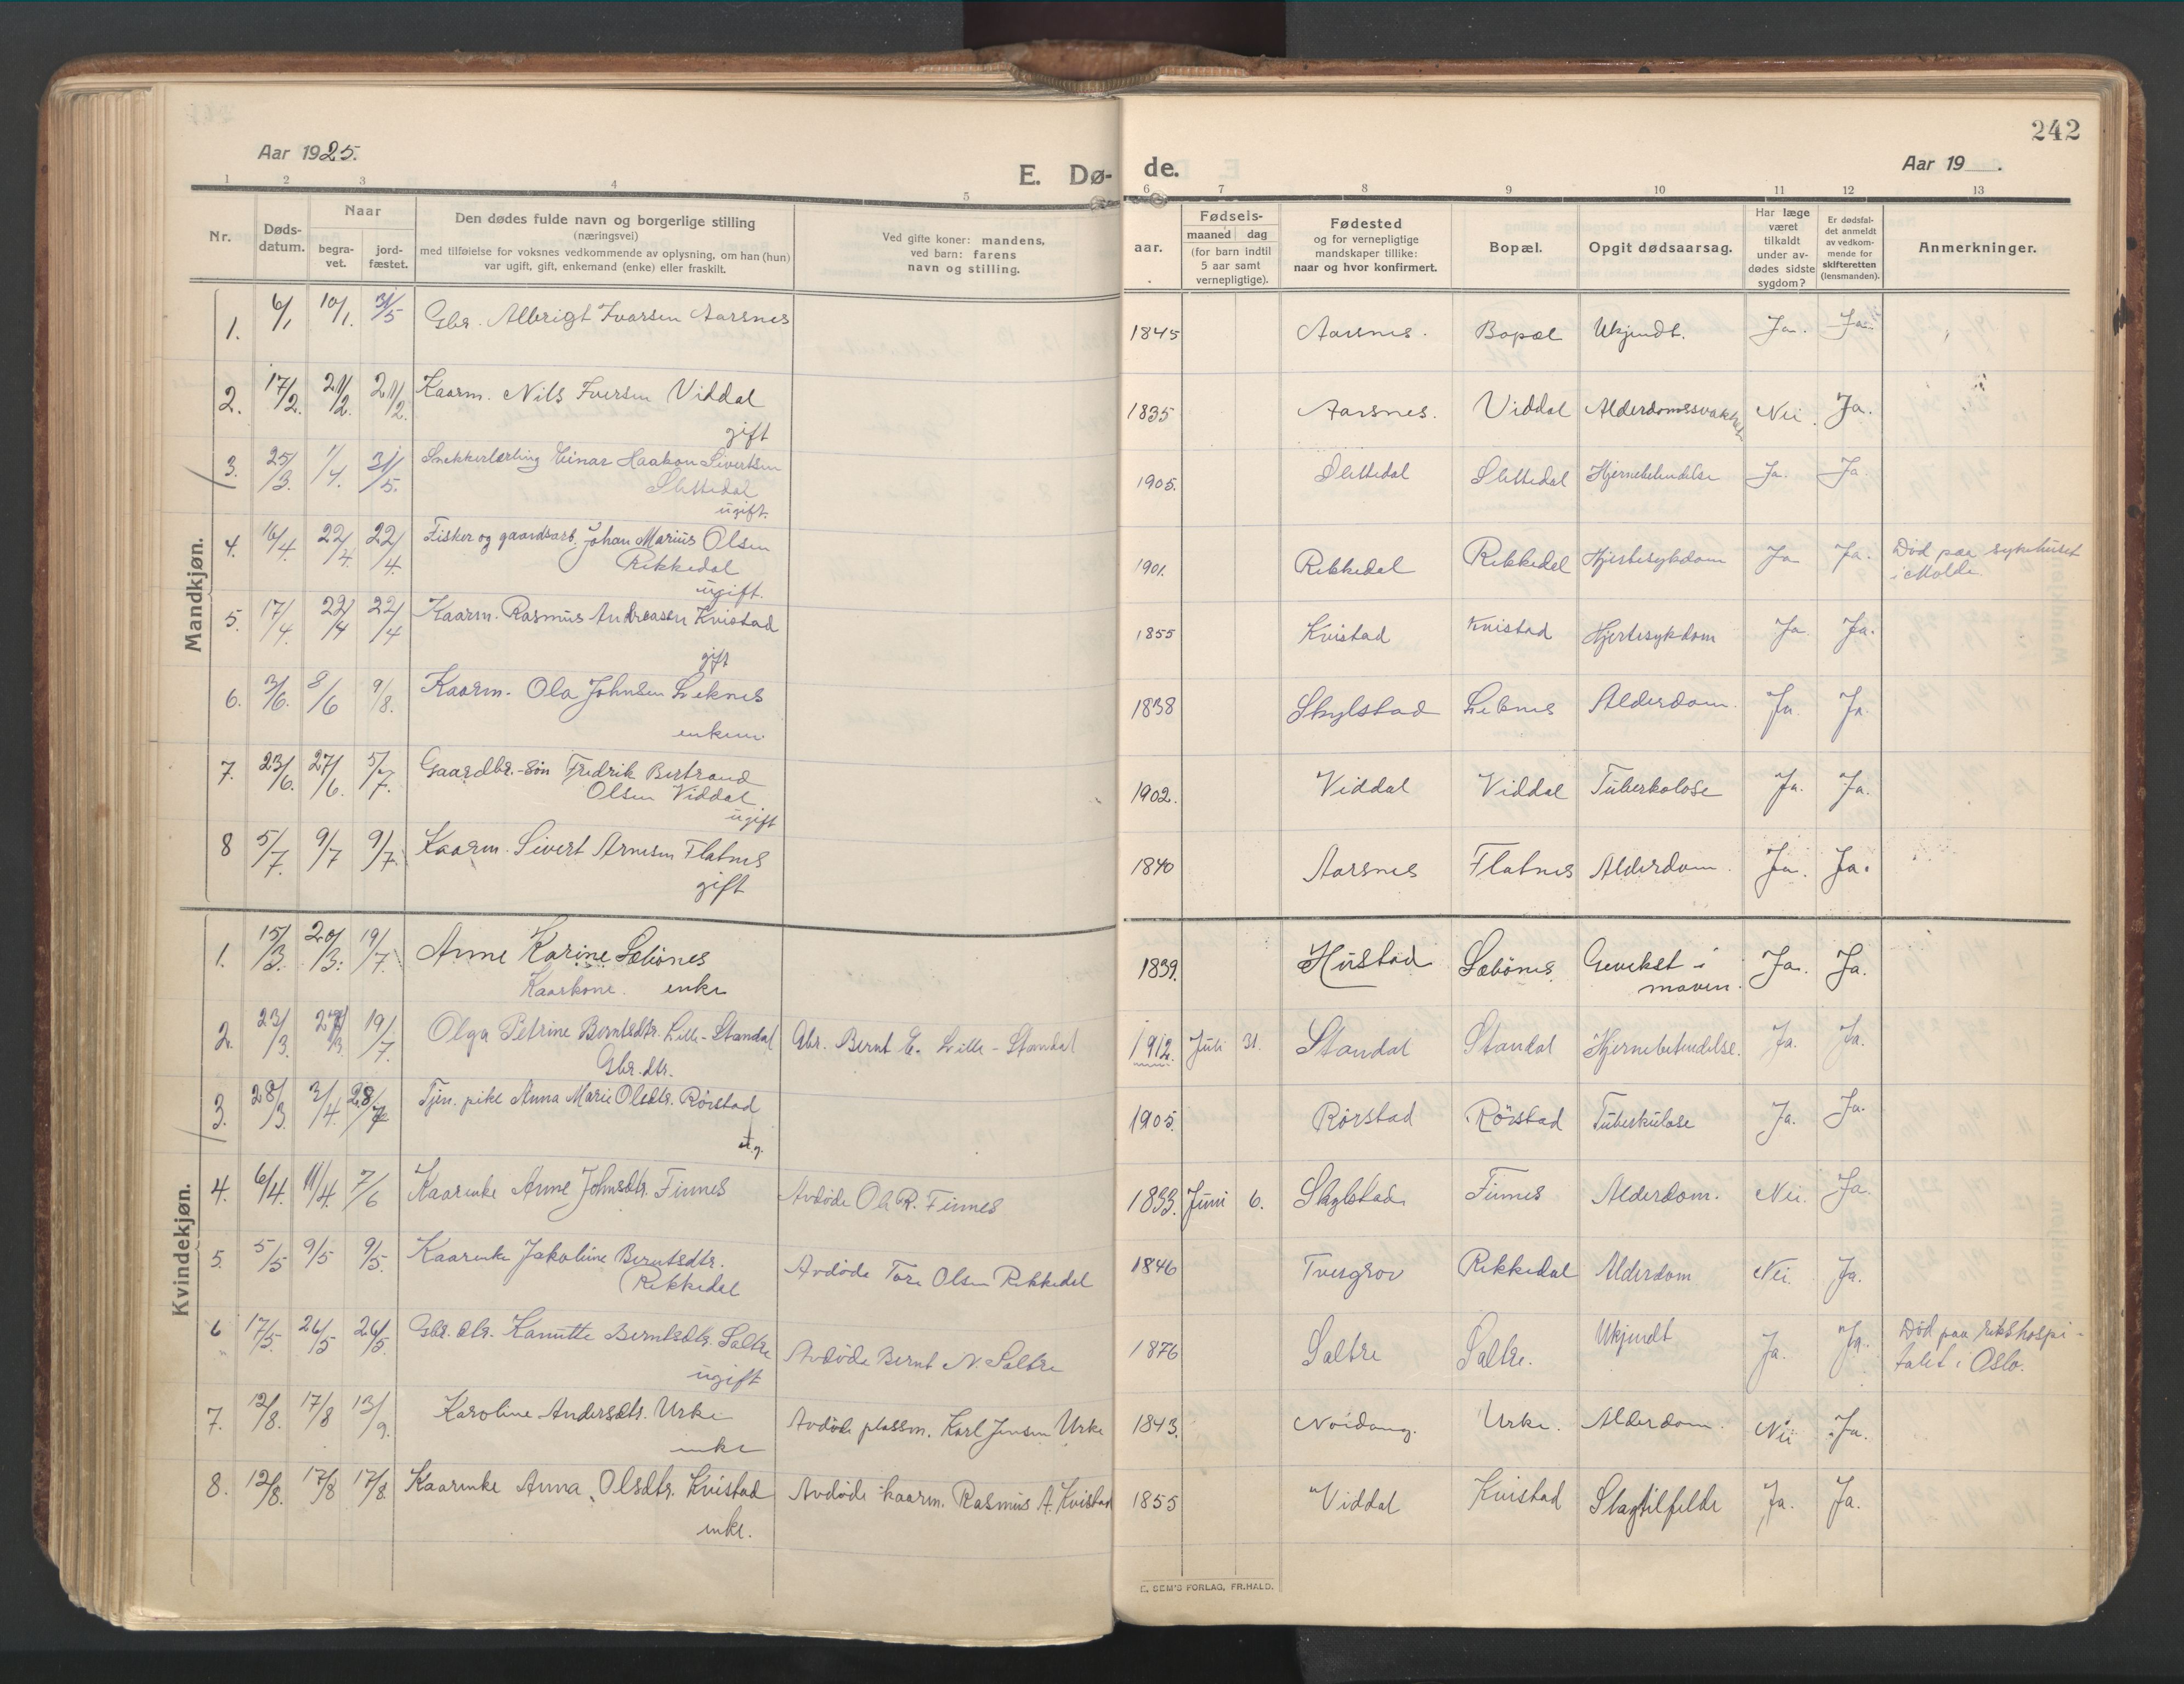 242
Aar 1925.
E. Dø- de.
Aar 19 .
1 2 3 4 5 6 7 8 9 10 11 12 13
Nr.
Døds-
datum.
Naar
begra-
vet.
jord-
fæstet.
Den dødes fulde navn og borgerlige stilling
(næringsvei)
med tilføielse for voksnes vedkommende av oplysning, om han (hun)
var ugift, gift, enkemand (enke) eller fraskilt.
Ved gifte koner: mandens,
ved barn: farens
navn og stilling.
aar.
Fødsels-
maaned dag
(for barn indtil
5 aar samt
vernepligtige).
Fødested
og for vernepligtige
mandskaper tillike:
naar og hvor konfirmert.
Bopæl.
Opgit dødsaarsag.
Har læge
været
tilkaldt
under av-
dødes sidste
sygdom?
Er dødsfal-
det anmeldt
av vedkom-
mende for
skifteretten
(lensmanden).
Anmerkninger.
Mandkjøn.
1. 6/1 10/1. 31/5 Gbr. Albrigt Ivarsen Aarsnes 1845 Aarsnes. Bopæl Ukjendt. Ja. Ja.
2. 17/2. 21/2. 21/2. Kaarm. Nils Iversen Viddal 1835 Aarsnes. Viddal Alderdomssvakhet Nei. Ja.
gift
3. 25/3. 1/4. 31/5. Snekkerlærling Einar Haakon Sivertsen 1905. Slettedal Slettedal Hjernebetendelse Ja. Ja
Slettedal
ugift.
4. 16/4. 22/4. 22/4. Fisker og gaardsarb. Johan Marius Olsen 1901. Rekkedal Rekkedal Hjertesykdom Ja Ja. Død paa sykehuset
Rekkedal i Molde
ugift.
5. 17/4. 22/4 22/4 Kaarm. Rasmus Andreassen Kvistad 1855 Kvistad Kvistad Hjertesykdom Ja. Ja.
gift
6. 3/6. 8/6 9/8. Kaarm. Ola Johnsen Leknes 1838 Skylstad Leknes Alderdom. Ja. Ja
enkem.
7. 23/6. 27/6. 5/7. Gaardbr.-søn Fredrik Bertrand 1902. Viddal Viddal Tuberkolose Ja. Ja.
Olsen Viddal.
ugift
8 5/7. 9/7 9/7. Kaarm. Sivert Arnesen Flatnes 1840 Aarsnes Flatnes Alderdom. Ja. Ja.
gift
Kvindekjøn.
1. 15/3. 20/3. 19/7. Anne Karine Sæbønes 1839. Hustad Sæbønes Gevekst i Ja. Ja.
Kaarkone. enke maven.
2. 23/3. 27/3. 19/7. Olga Petrine Berntsdtr. Lille-Standal Gbr. Bernt E. Lille-Standal 1912. Juli 31. Standal Standal Hjernebetendelse. Ja. Ja.
Gbr. dtr.
3. 28/3. 3/4. 28/7 Tjen. pike Anna Marie Olsdtr. Rørstad 1905. Rørstad Rørstad Tuberkulose Ja. Ja.
4. 6/4. 11/4. 7/6 Kaarenke Anne Johnsdtr. Finnes Avdøde Ola R. Finnes 1833. Juni 6. Skylstad Finnes Alderdom. Nei. Ja.
5. 5/5 9/5 9/5. Kaarenke Jakoline Berntsdtr. Avdøde Tore Olsen Rekkedal 1846 Tvergrov Rekkedal Alderdom Nei. Ja.
Rekkedal
6 17/5. 26/5 26/5. Gbr. dtr. Kanutte Berntsdtr. Saltre Avdøde Bernt N. Saltre 1876 Saltre Saltre. Ukjendt Ja. Ja. Død paa rikshospi-
ugift talet i Oslo.
7. 12/8. 17/8 13/9. Karoline Andersdtr. Urke Avdøde plassm. Karl Jensen Urke 1843. Nordang. Urke. Alderdom. Nei Ja.
enke
8. 12/8. 17/8 17/8. Kaarenke Anna Olsdtr. Kvistad Avdøde kaarm. Rasmus A. Kvistad 1855 Viddal Kvistad Slagtilfelde Ja. Ja.
enke.
E. SEM'S FORLAG, FR.HALD.